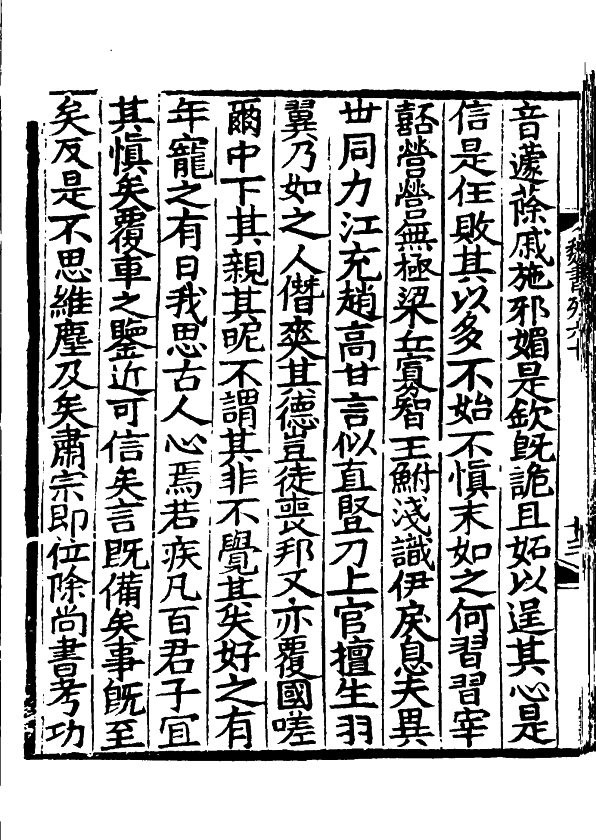 音蘧蒢戚施邪媚是欽旣詭且妬以逞其心是
信是任敗其以多不始不慎末如之何習習宰
嚭營營無極梁丘寡智王鮒淺識伊戾息夫異
丗同力江充趙高甘言似直竪刀上官擅生羽
翼乃如之人僭爽其德豈徒喪邦又亦覆國嗟
爾中下其親其昵不謂其非不覺其失好之有
年寵之有日我思古人心焉若疾凡百君子冝
其慎矣覆車之鑒近可信矣言旣備矣事旣至
矣反是不思維塵及矣肅宗即位除尚書考功